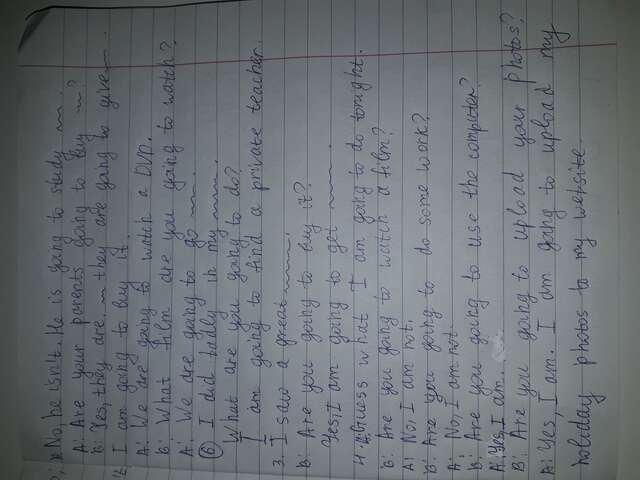 B: No, he isn't. He is going to study ~~~.
A: Are your parents going to buy ~?
B: Yes, they are. ~ they are going to give ~~.
2. I am going to buy it.
A: We are going to watch a DVD.
B: What film are you going to watch?
A: We are going to go ~~.
⑥ I did badly in my ~~~.
What are you going to do?
I am going to find a private teacher.
3. I saw a great ~~~~.
B: Are you going to buy it?
Yes, I am going to get ~~~.
4. A: Guess what I am going to do tonight.
B: Are you going to watch a film?
A: No, I am not.
B: Are you going to do some work?
A: No, I am not
B: Are you going to use the computer?
A: Yes, I am.
B: Are you going to upload your photos?
A: Yes, I am. I am going to upload my
holiday photos to my website.